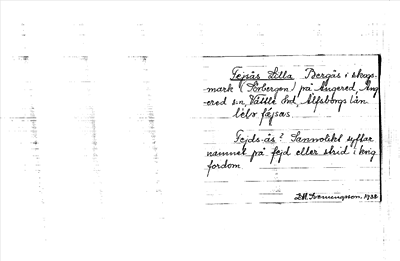 Fejsås Lilla Bergås i skogs-
mark (Torbergen) på Angered, Ang
ered sn, Vättle hd, Älfsborgs län
fäjsås.
Fejds-ås? Sannolikt syftar
namnet på fejd eller strid i krig
fordom.
1922